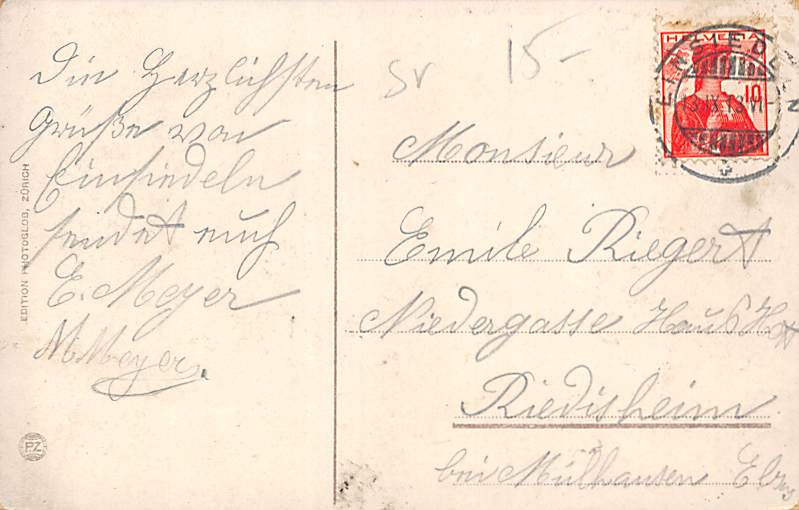 Die Herzlichsten
Grüße von
Einsiedeln
sendet euch
E. Meyer
M. Meyer.
EDITION PHOTOGLOB, ZÜRICH
PZ.
15-
HELVETIA
10
EINSIEDELN
13.IX.13.VI-
Monsieur
Emile Riegert
Niedergasse Haus
Riedisheim
bei Mülhausen Els